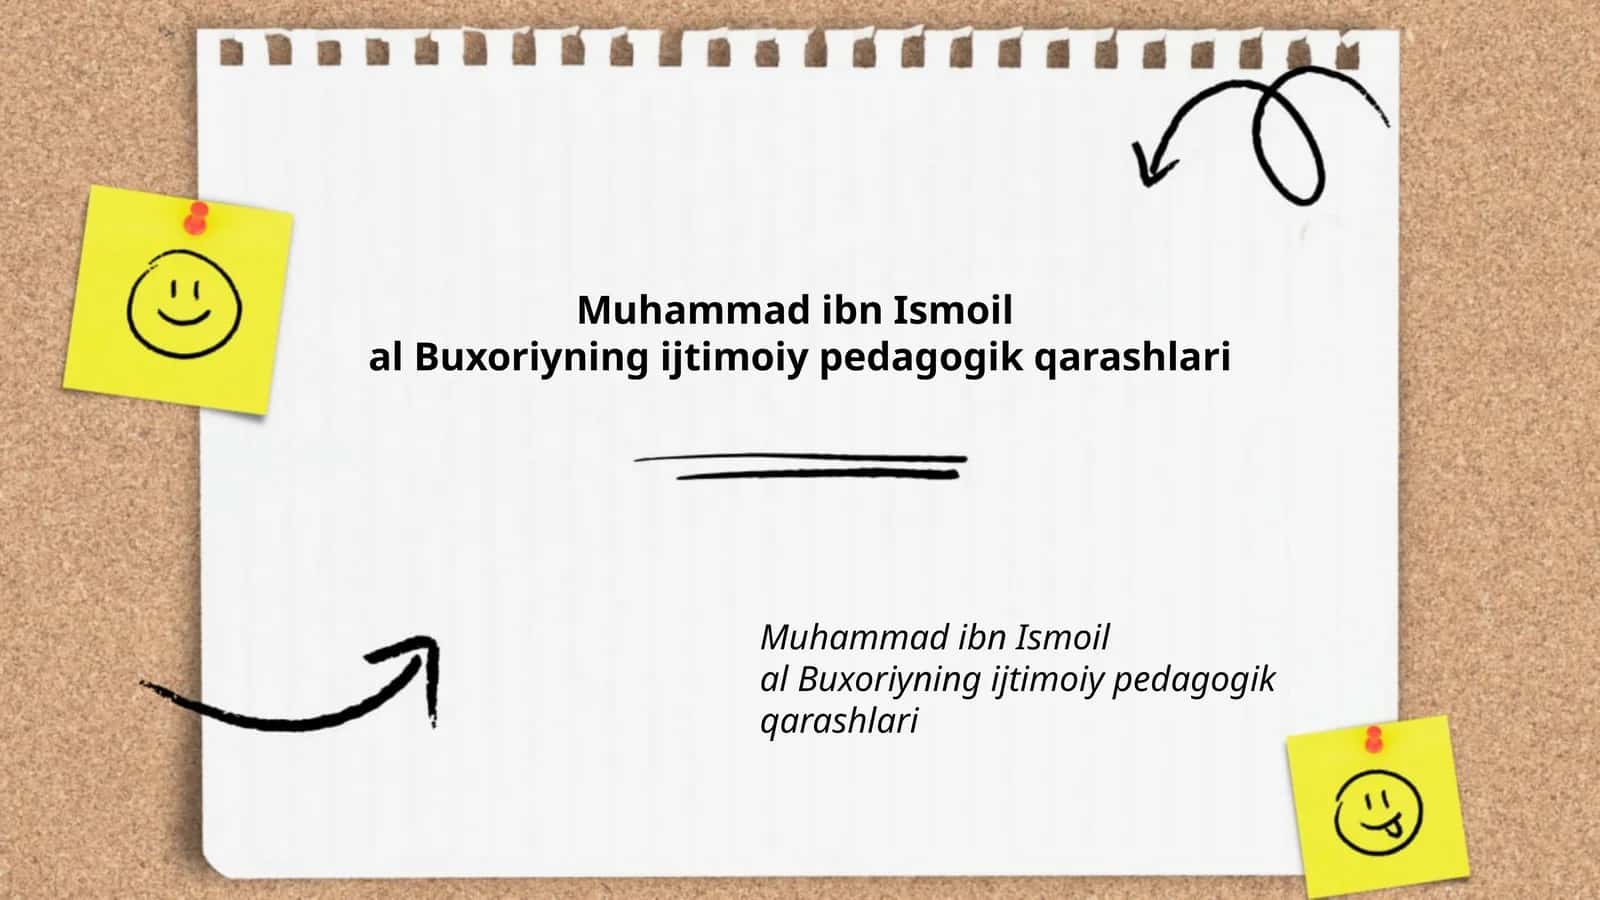 Muhammad ibn Ismoil
al Buxoriyning ijtimoiy pedagogik qarashlari
Muhammad ibn Ismoil
al Buxoriyning ijtimoiy pedagogik
qarashlari